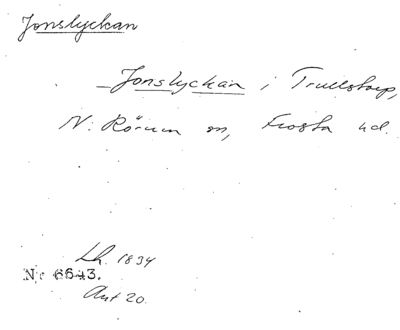 Jonslyckan
Jonslyckan i Trulstorp,
N. Rörum sn, Frosta hd.
Lh. 1834
No 6643.
Akt 20.